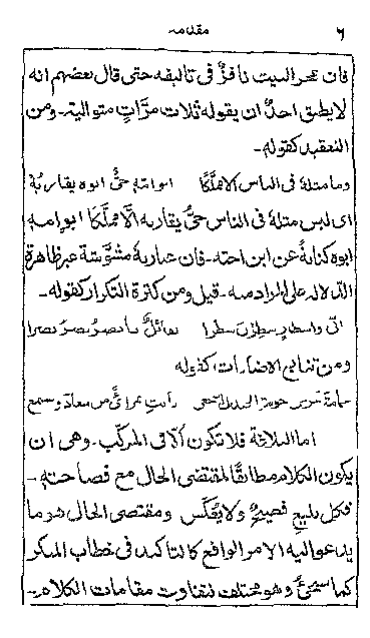 ٦ مقدمه
فان عجز البيت نافرٌ فى تاليفه حتى قال بعضهم انه
لا يطيق احدٌ ان يقوله ثلاث مرّاتٍ متوالية۔ ومن
التعقيد كقوله۔
وما مثله فى الناس الا مملّكا ابو امّهٖ حيٌّ ابوه يقاربهٗ
اى ليس مثله فى الناس حيٌّ يقاربه الّا مملّكا ابو امه
ابوه كنايةً عن ابن اخته۔ فان عبارته مشوّشة غير ظاهرة
الدلالة على المراد منه۔ قيل ومن كثرة التكرار كقوله۔
انّى واسطارٍ سطرْن سطرا لقائلٌ يا نصرُ نصرُ نصرا
ومن تتابع الاضافات كقوله
حمامة جرعى حومة الجندل اسجعى
اما البلاغة فلا تكون الّا فى المركّب۔ وهى ان
يكون الكلام مطابقًا لمقتضى الحال مع فصاحته۔
فكل بليغ فصيحٌ ولا يُعكَس ومقتضى الحال هو ما
يدعو اليه الامر الواقع كالتاكيد فى خطاب المنكر
كما سيجئُ وهو مختلف لتفاوت مقامات الكلام۔